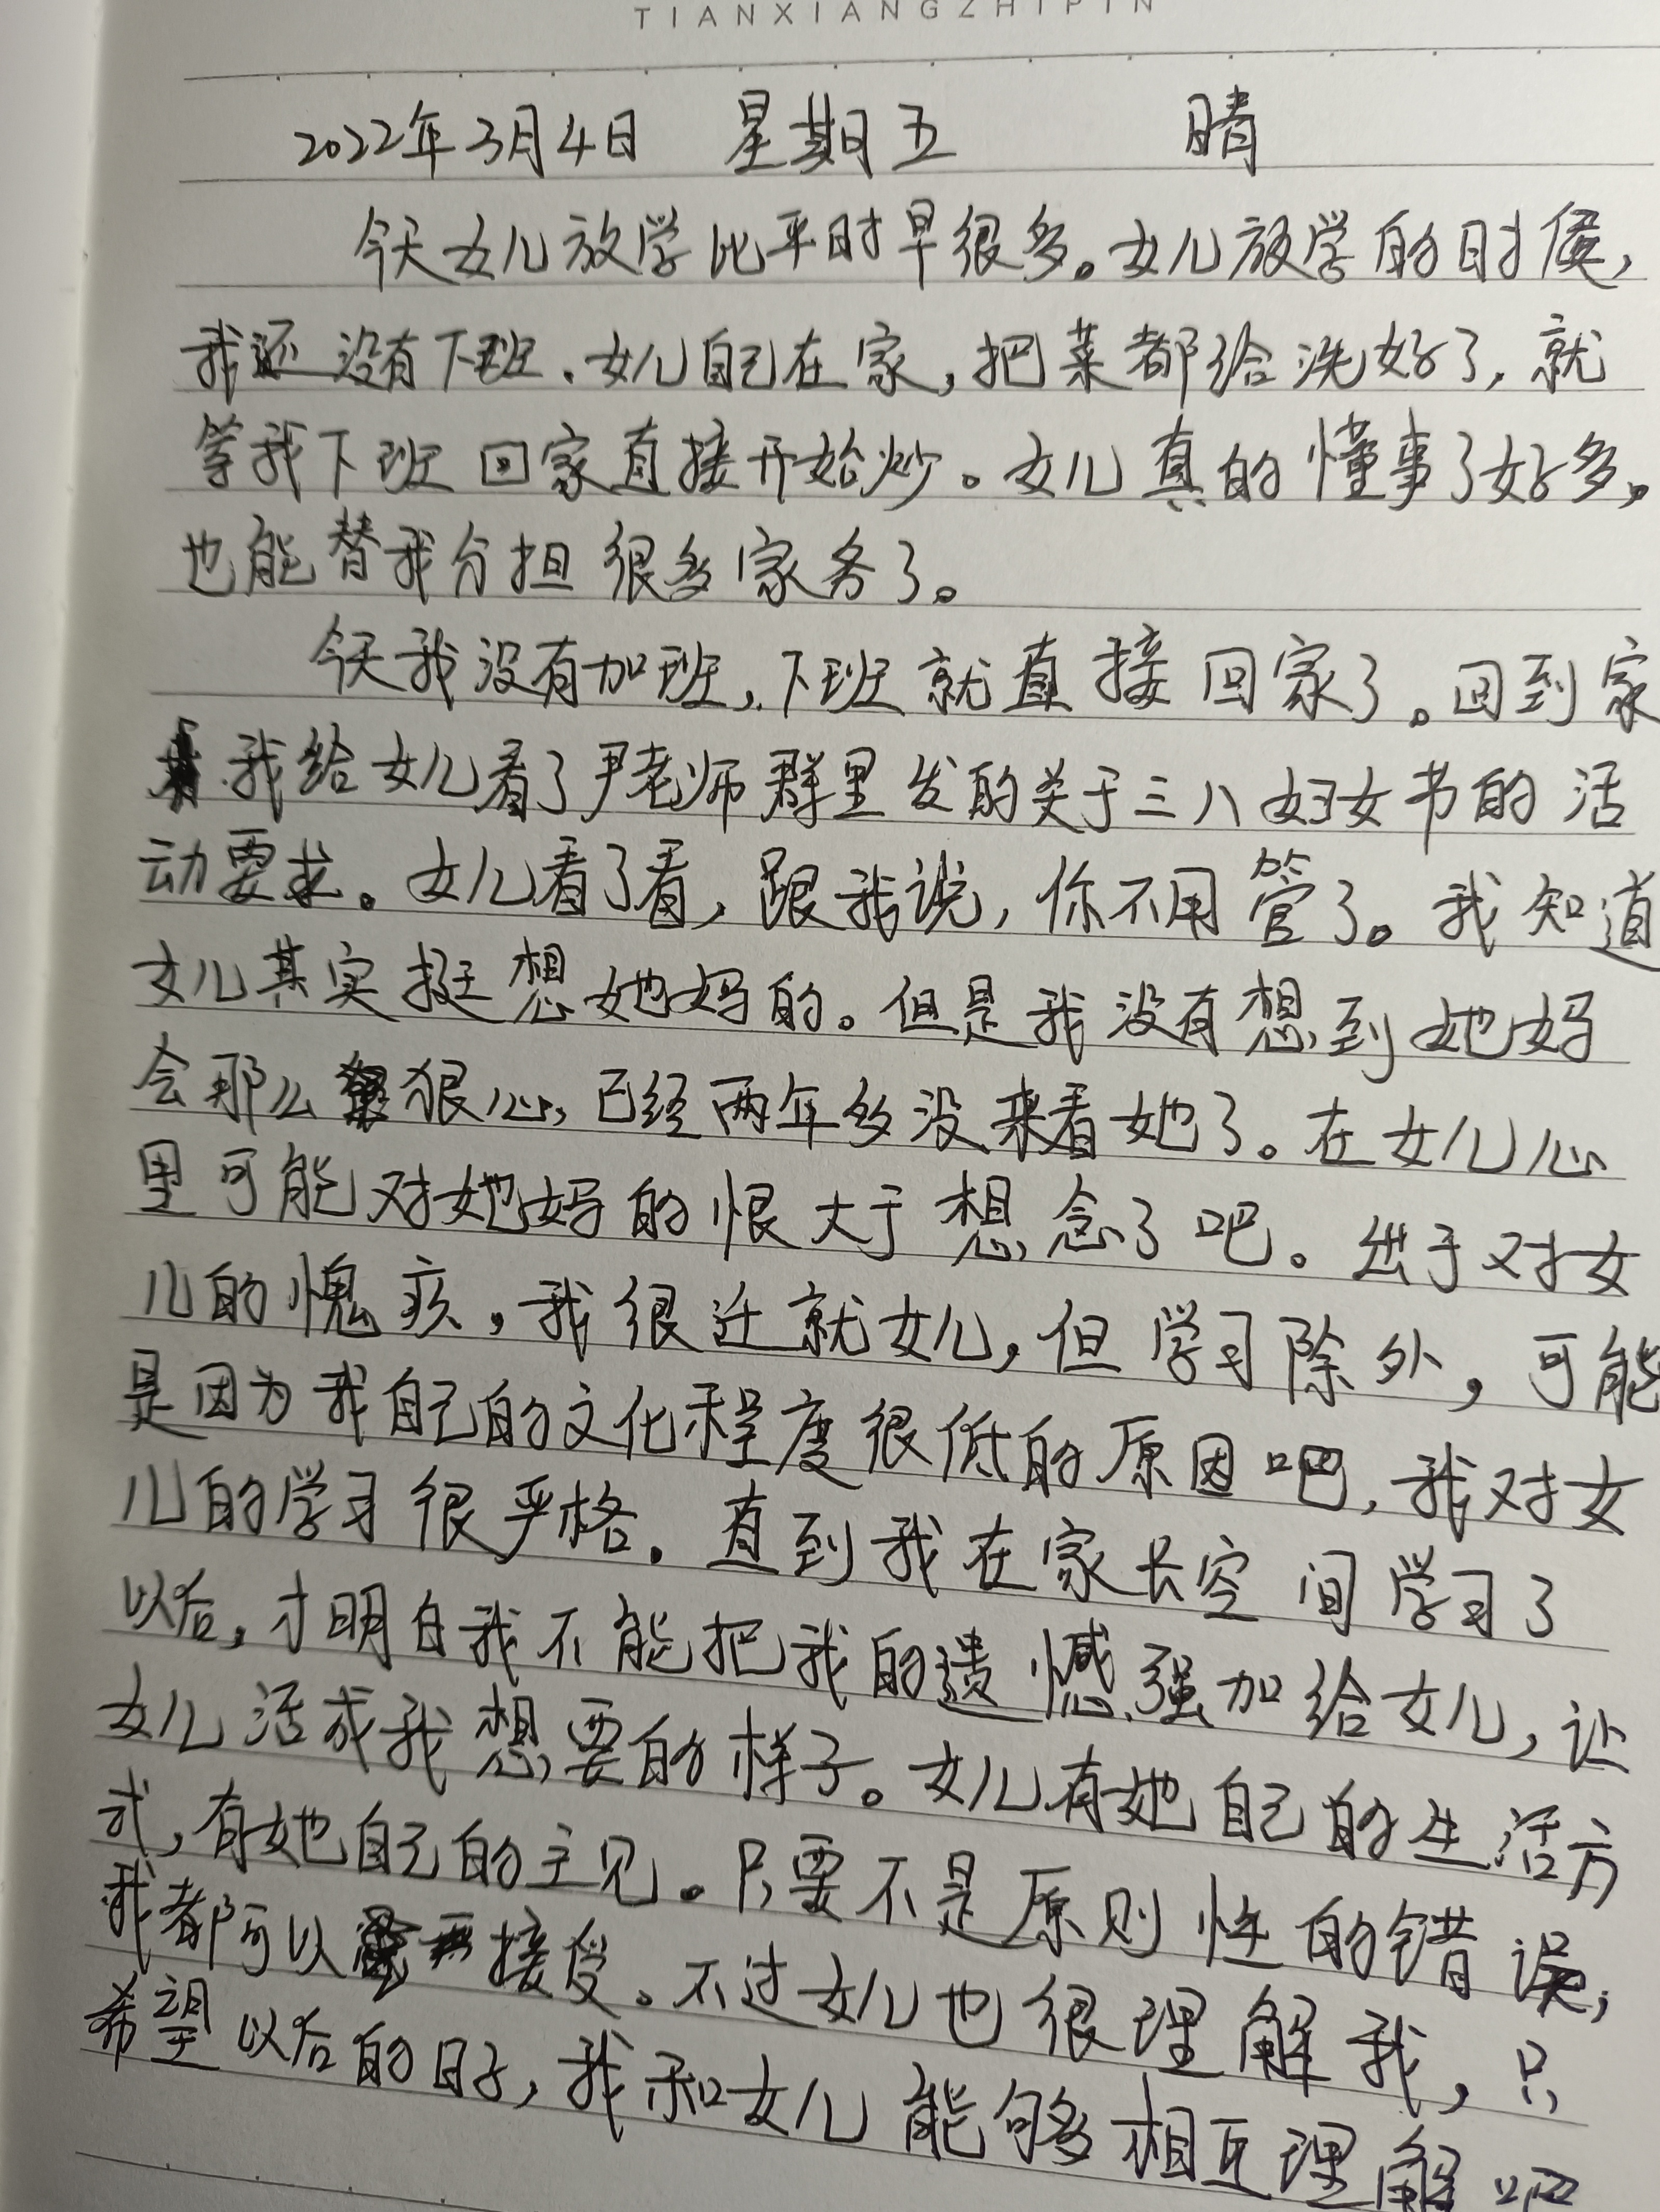 TIANXIANGZHIPIN
2022年3月4日 星期五 晴
今天女儿放学比平时早很多。女儿放学的时侯,
我还没有下班.女儿自己在家,把菜都给洗好了,就
等我下班回家直接开始炒。女儿真的懂事了好多。
也能替我分担很多家务了。
今天我没有加班,下班就直接回家了。回到家
我给女儿看了尹老师群里发的关于三八妇女节的活
动要求。女儿看了看,跟我说,你不用管了。我知道
女儿其实挺想她妈的。但是我没有想到她妈
会那么狠心,已经两年多没来看她了。在女儿心
里可能对她妈的恨大于想念了吧。出于对女
儿的愧疚,我很迁就女儿,但学习除外,可能
是因为我自己的文化程度很低的原因吧,我对女
儿的学习很严格.直到我在家长空间学习了
以后,才明白我不能把我的遗憾强加给女儿,让
女儿活成我想要的样子。女儿有她自己的生活方
式,有她自己的主见.只要不是原则性的错误,
我都可以接受.不过女儿也很理解我,只
希望以后的日子,我和女儿能够相互理解吧